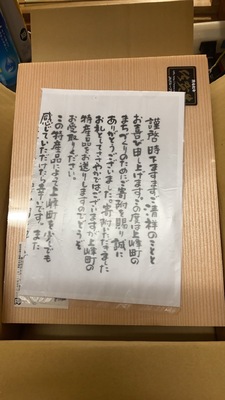 謹啓 時下ますますご清祥のことと
お喜び申し上げます。この度は上峰町の
まちづくりのためにご寄附を賜り誠に
ありがとうございました。寄附いただきました
お礼としてささやかではございますが上峰町の
特産品をお送りしますのでどうぞ
お受取りください。
この特産品によって上峰町を少しでも
感じていただけたら幸いです。また